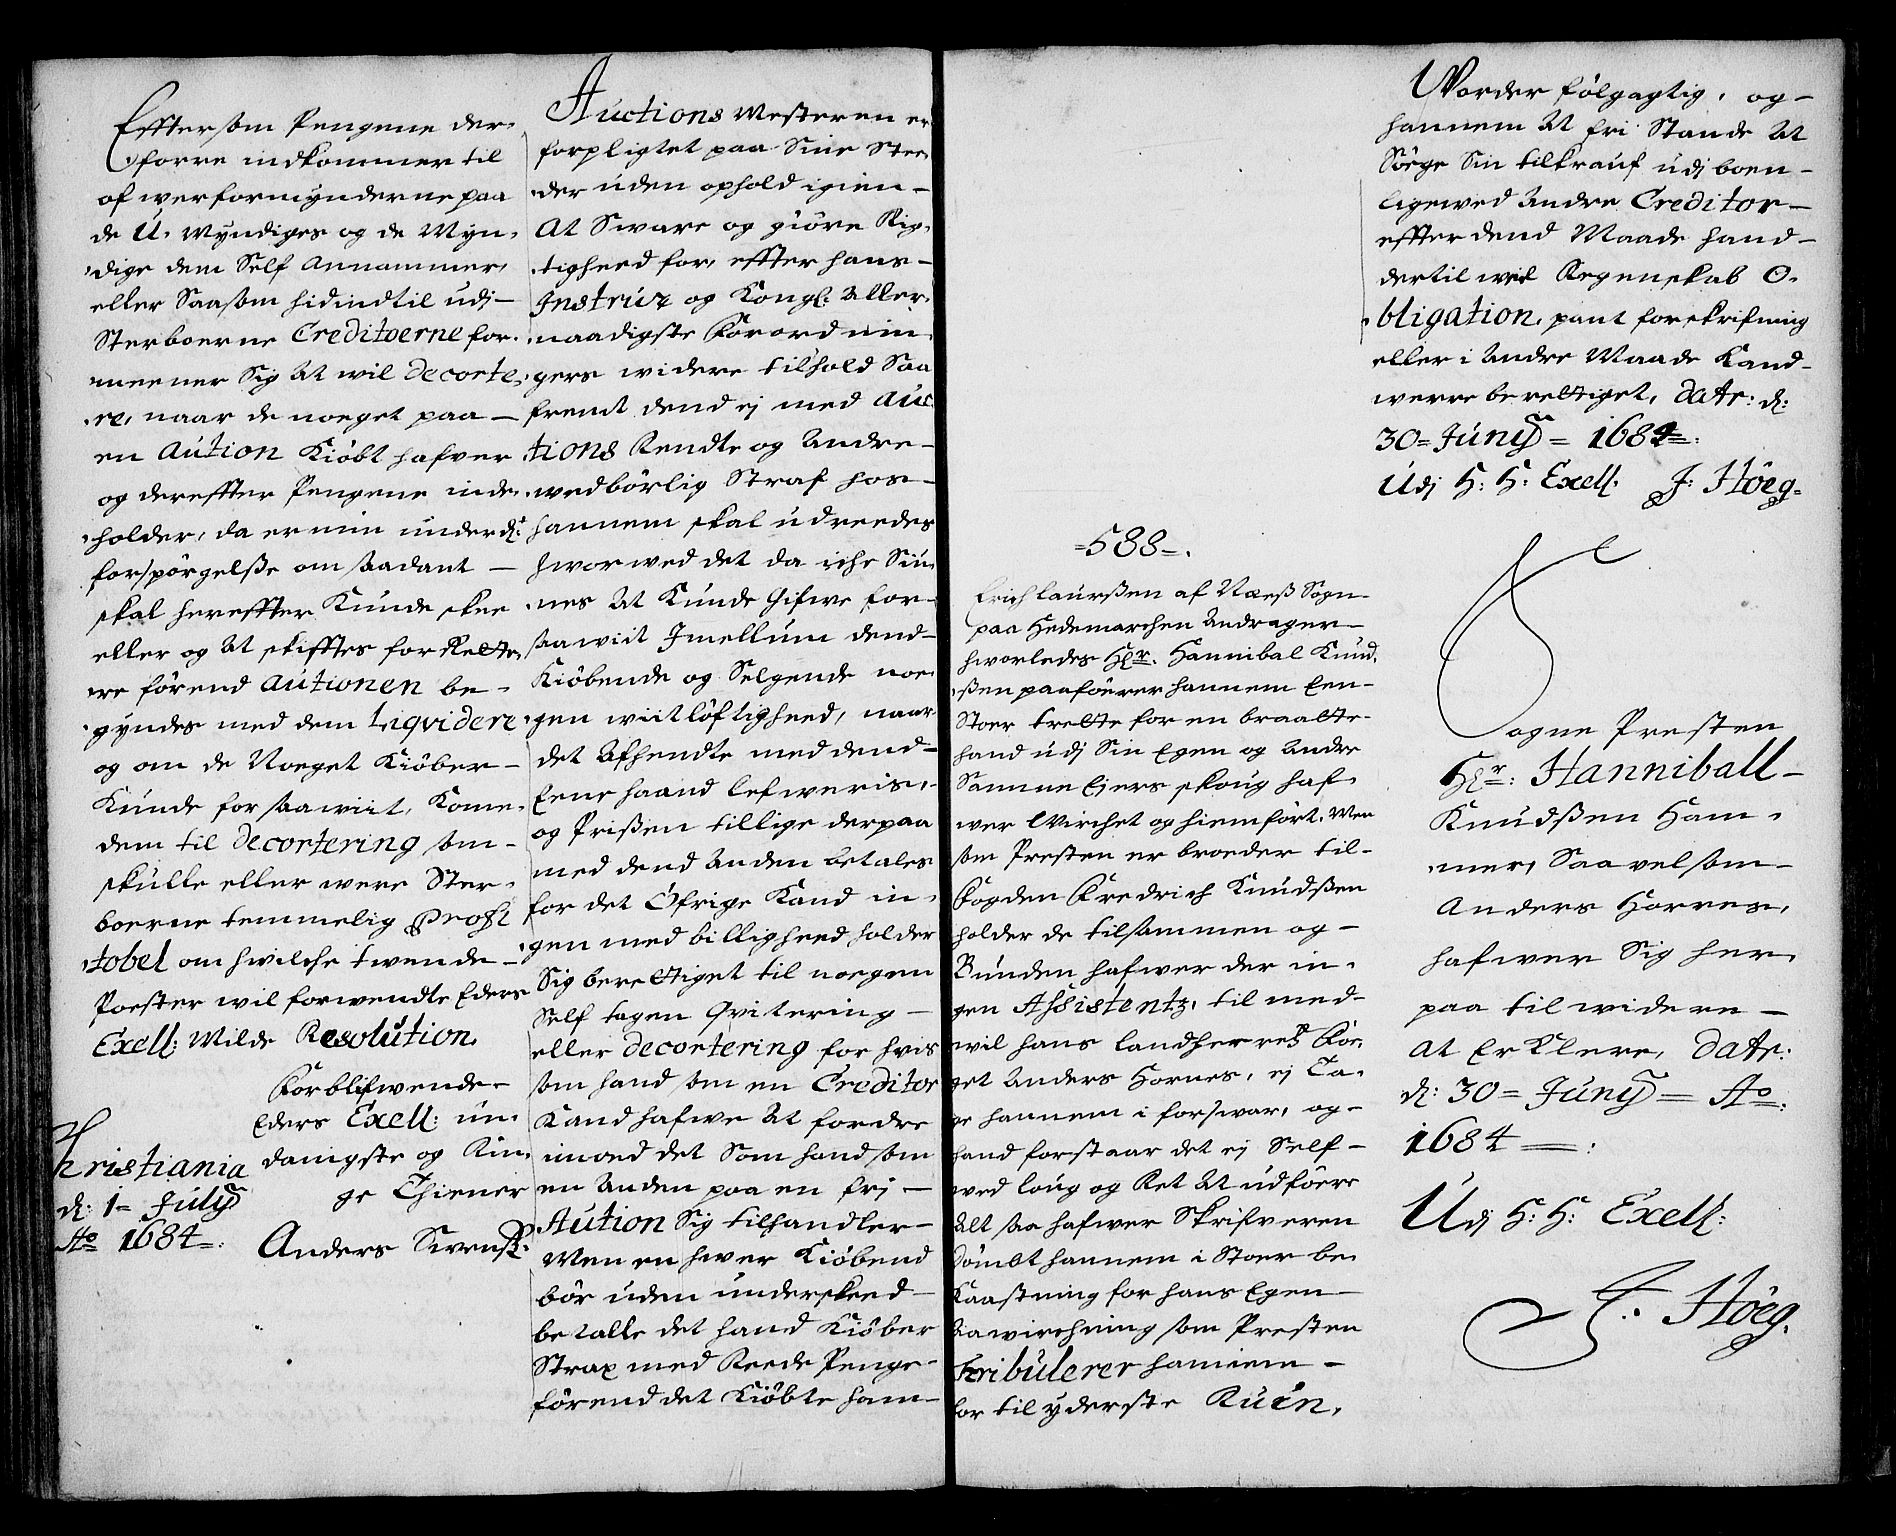 Effter som Pengene der,
forre indkommer til
ofwerformynderne paa
de U, Myndiges og de Myn,
dige dem Self Annammer,
eller Saasom hidindtil udj
Sterboerne Creditoerne for,
meener Sig At wil decorte,
re, naar de noeget paa
en Aution Kiøbt hafver
og dereffter Pengene inde,
holder, da er min underd:
forspørgelsse om saadant
skal hereffter Kunde skee
eller og At skifftes forRette,
re førend Autionen be,
gyndes med dem Liqvidere
og om de Noeget Kiøber
Kunde for saawiit, Kome
dem til decortering som
skulle eller were Ster,
boerne temmelig Profi
tobel om hwilche twende
Poester wil forwendte Eders
Exell: Milde Resolution,
Forblifwende
Eders Exell: un,
danigste og Rin,
ge Thiener
Anders Swens:
Christiania
d: 1 = Julÿ
Ao 1684 =:
Auctions Mesteren er
forpligtet paa Sine Stee,
der uden ophold igien
At Sware og giöre Rig,
tigheed for, effter hans
Instrux og Kongl: Aller,
naadigste Forordnin
gers widere tilhold Saa
fremt dend ej med Auc
tions Rendte og Andre
wedbörlig Straf hos
hannem skal udreedes
hworwed det da iche Sün,
nes At Kunde Gifwe for
saawiit Imellum dend
Kiöbende og Selgende noe
gen wiitlöftigheed, naar
det Afhendte med dend
Eene haand lefweris,
og Prissen tillige derpaa
med dend Anden betales
for det Öfrige Kand in,
gen med billigheed holder
Sig berettiget til noegen
Self tagen Qvitering
eller decortering for hvis
som hand som en Creditor
Kand hafwe At fordre
imoed det Som hand som
en Anden paa en frj
Aution Sig tilhandler
Men en hwer Kiöbend
bör uden underskeed
betalle det hand Kiöber
Strax med Reede Penge
förend det Kiöbte ham
=588=.
Erich laurssen af Næss Sogn
paa Hedemarchen Andrager
hworledes Hr: Hannibal Knud,
ssen paaföerer hannem Een
Stoer trette for en braatte
hand udj Sin Egen og Andre
Samme Ejers skoug haf,
wer Wirchet og hiemført, Men
som Presten er broeder til
Fogden Fredrich Knudssen
holder de tilsammen og
Bunden hafwer der in,
gen Assistentz, til med
wil hans landherres For,
get Anders Hornes, ej Ta,
ge hannem i forswar, og
hand forstaar det ej Self
wed loug og Ret At udföere
Alt saa hafwer Skrifveren
Dömbt hannem i Stoer be
Kaastning for hans Egen
Aawirchning som Presten
tribulerer hannem
for til yderste Ruin,
Worder følgagtig, og
hannem At fri Stande At
Söege Sin tilkrauf udj boen
ligewed Andre Creditor
effter dend Maade hand
dertil wed Regenskab O,
bligation, pant forskrifning
eller i Andre Maade Kand
werre berettiget, Datr: d:
30 = Junÿ = 1684 =:
Udj H: H: Exell: J: Höeg.
Sogne Presten
Hr: Hanniball
Knudssen Ham,
mer, Saavelsom
Anders Horres,
hafwer Sig her,
paa til widere
At Erklere, Datr:
d: 30 = Junÿ = Ao:
1684 =:
Udj H: H: Exell:
J: Höeg.